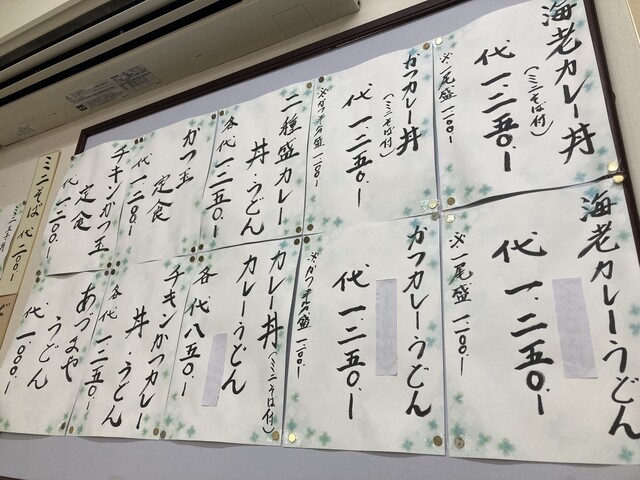 海老カレー丼
(ミニそば付)
代 一、二五〇.ー
※一尾盛 一、一〇〇.ー
かつカレー丼
(ミニそば付)
代 一、二五〇.ー
二種盛カレー
丼・うどん
各代 一、二五〇.ー
かつ玉
定食
代 一、二〇〇.ー
チキンかつ玉
定食
代 一、二〇〇.ー
ミニそば 代 二〇〇.ー
海老カレーうどん
代 一、二五〇.ー
※一尾盛 一、一〇〇.ー
かつカレーうどん
代 一、二五〇.ー
カレー丼(ミニそば付)
カレーうどん
各代 八五〇.ー
チキンかつカレー
丼・うどん
各代 一、二五〇.ー
あづまや
うどん
代 一、〇〇〇.ー